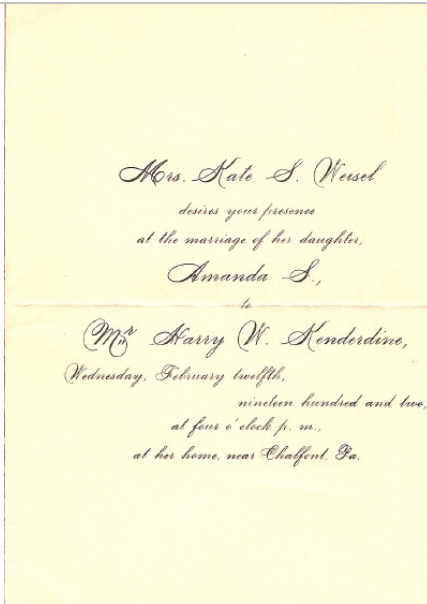 Mrs. Kate S. Weisel
desires your presence
at the marriage of her daughter,
Amanda S.,
to
Mr Harry W. Kenderdine,
Wednesday, February twelfth,
nineteen hundred and two,
at four o'clock p. m.,
at her home, near Chalfont, Pa.